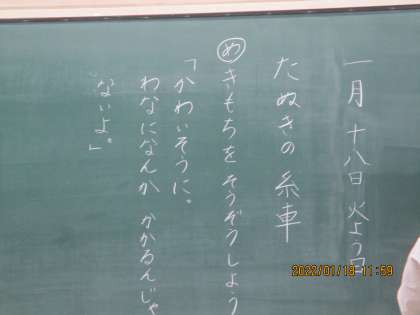 一月十八日火よう日
たぬきの糸車
めきもちをそうぞうしよう
「かわいそうに。
わなになんかかかるんじゃ
ないよ。」
2022/01/18 11:59